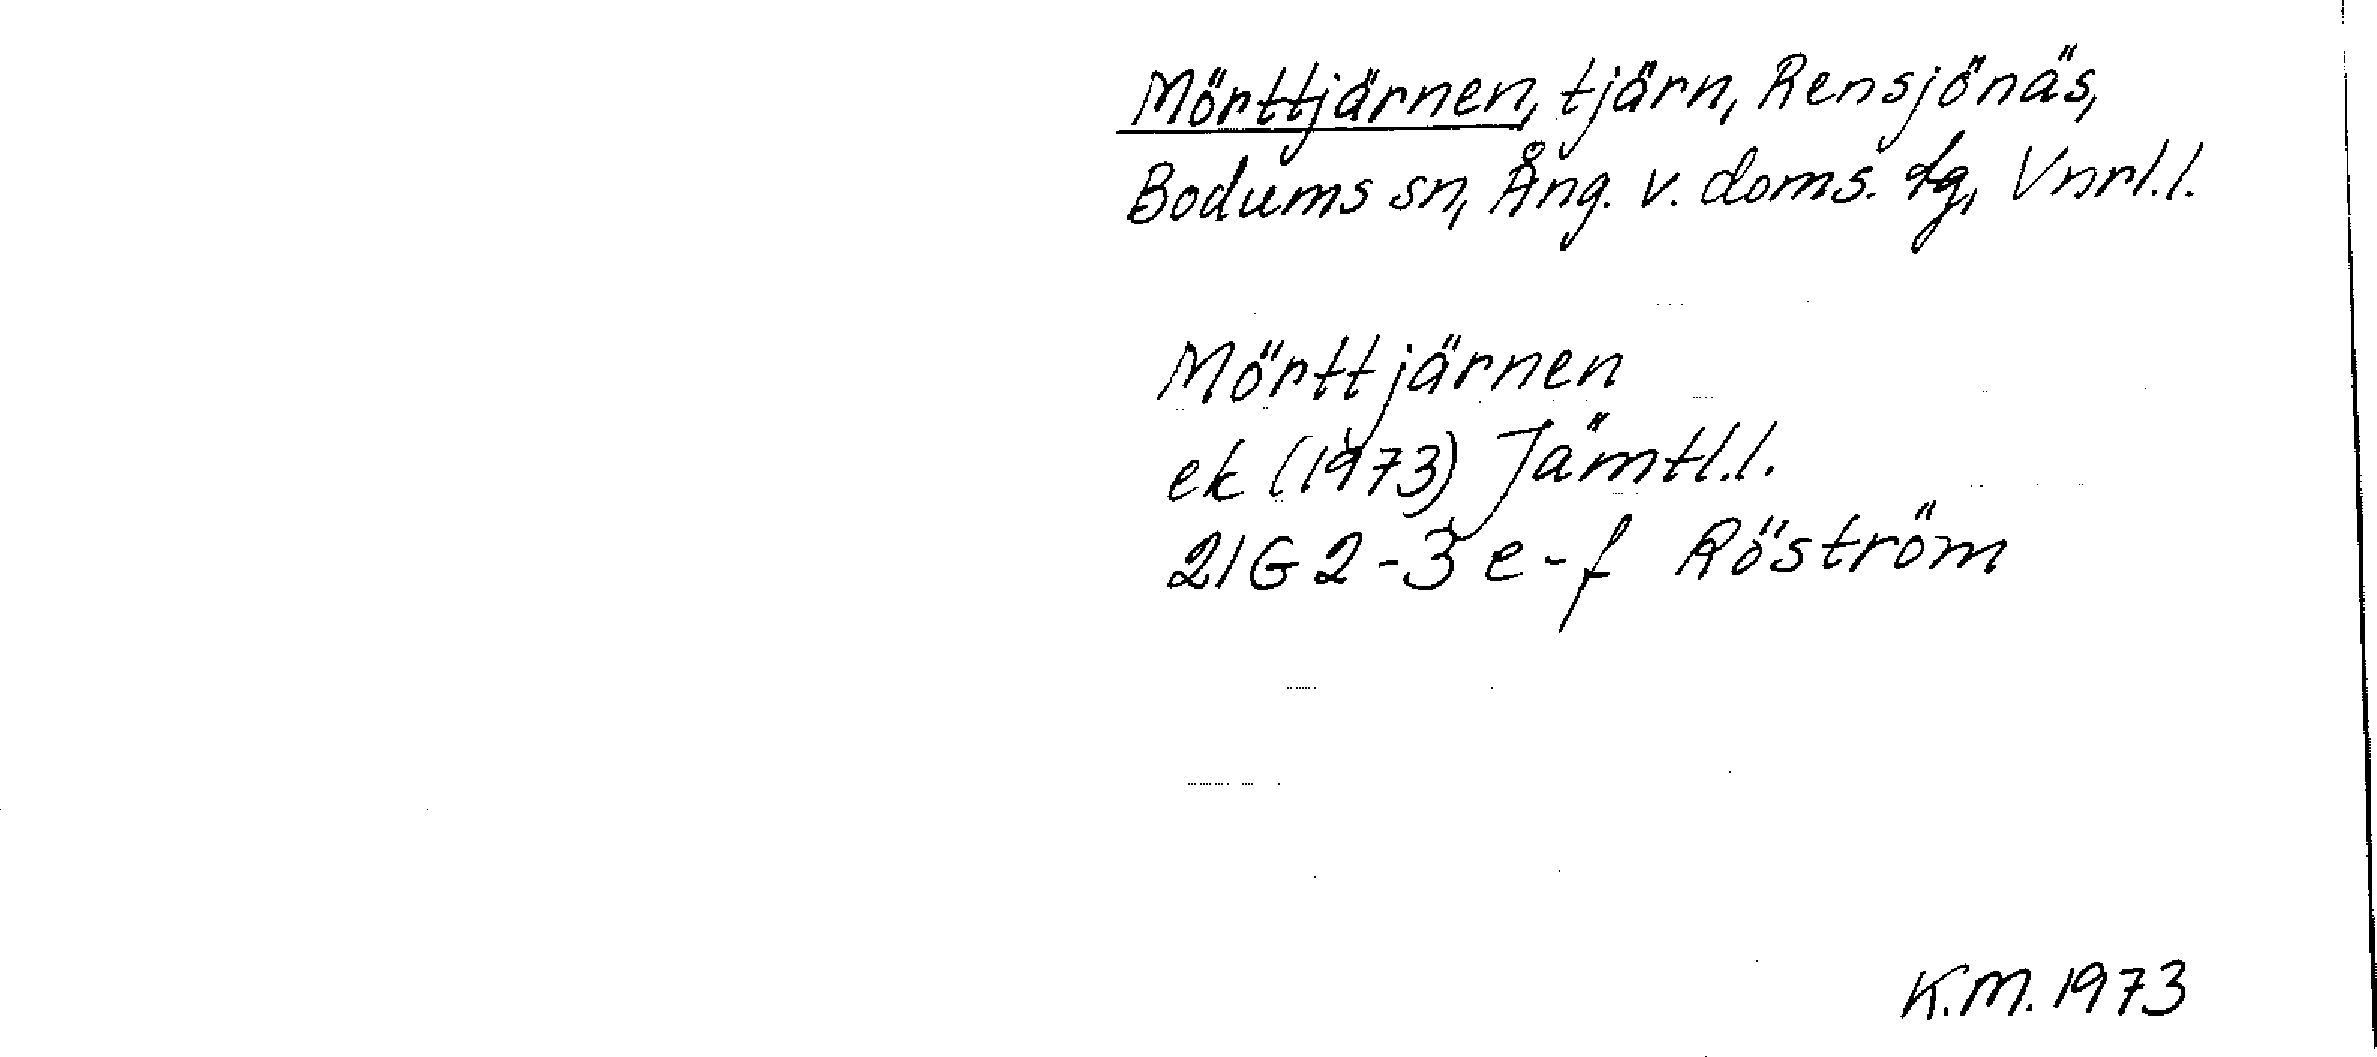 Mörttjärnen, tjärn, Rensjönäs,
Bodums sn, Ång. v. doms. dg, Vnrl.l.
Mörttjärnen
ek (1973) Jämtl.l.
21G 2-3 e-f Röström
K.M. 1973